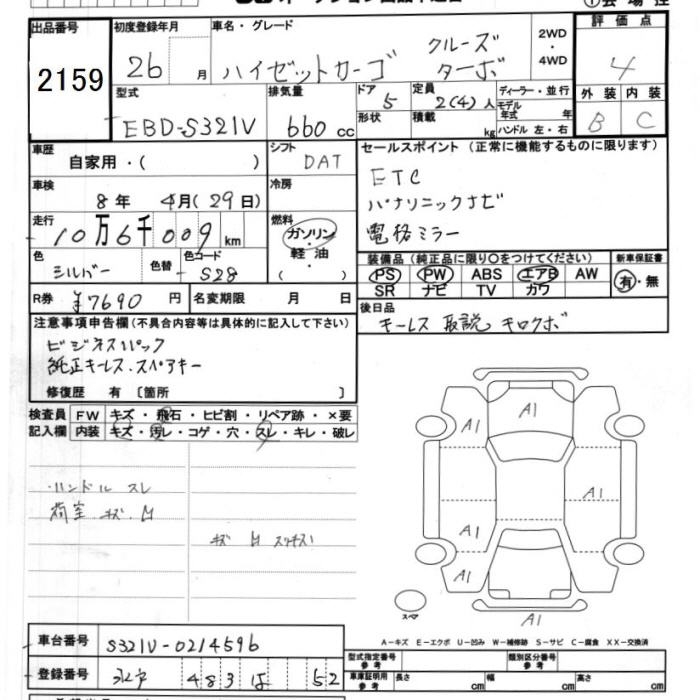 出品番号
2159
初度登録年月
26 月
車名・グレード
ハイゼットカーゴ クルーズ ターボ
2WD
・
4WD
評価点
4
外装 内装
B C
型式
EBD-S321V
排気量
660 cc
ドア
5
形状
定員
2(4)人
積載
kg
ディーラー・並行
モデル年式 年
ハンドル 左・右
車歴
自家用・( )
シフト
DAT
車検
8年 4月(29日)
冷房
走行
10万6千009 km
燃料
ガソリン
・
軽油
・
( )
色
シルバー
色替
色コード
S28
R券 ¥7690 円
名変期限 月 日
セールスポイント(正常に機能するものに限ります)
ETC
パナソニックナビ
電格ミラー
装備品(純正品に限り○をつけてください)
PS PW ABS エアB AW
SR ナビ TV カワ
新車保証書
有・無
後日品
キーレス 取説 キロクボ
注意事項申告欄(不具合内容等は具体的に記入して下さい)
ビジネスパック
純正キーレス.スペアキー
修復歴 有 〔箇所 〕
検査員
記入欄
FW キズ・飛石・ヒビ割・リペア跡・×要
内装 キズ・汚レ・コゲ・穴・スレ・キレ・破レ
ハンドル スレ
荷室 キズ.凹
キズ 凹
A1
A1
A1
A1
A1
A1
スペア
A1
A-キズ E-エクボ U-凹み W-補修跡 S-サビ C-腐食 XX-交換済
車台番号
S321V-0214596
登録番号
483 は 52
型式指定番号
参考
類別区分番号
参考
車庫証明用
参考
長さ cm
幅 cm
高さ cm